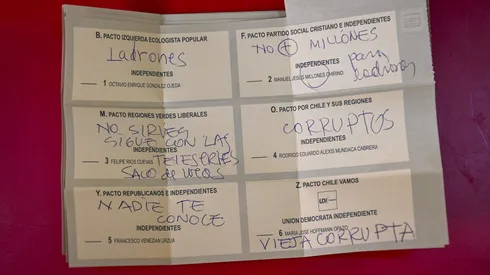 B. PACTO IZQUIERDA ECOLOGISTA POPULAR
Ladrones
INDEPENDIENTES
1 OCTAVIO ENRIQUE GONZALEZ OJEDA
M. PACTO REGIONES VERDES LIBERALES
NO SIRVES
SIGUE CON LAS
INDEPENDIENTES
TELESERIES
3 FELIPE RIOS CUEVAS
SACO de
Y. PACTO REPUBLICANOS E INDEPENDIENTES
NADIE TE
CONOCE
INDEPENDIENTES
5 FRANCESCO VENEZIAN URZUA
F. PACTO PARTIDO SOCIAL CRISTIANO E INDEPENDIENTES
NO + MILLONES
INDEPENDIENTES
para
2 MANUEL JESUS MILLONES CHIRINO
ladrones
O. PACTO POR CHILE Y SUS REGIONES
CORRUPTOS
INDEPENDIENTES
4 RODRIGO EDUARDO ALEXIS MUNDACA CABRERA
Z. PACTO CHILE VAMOS
UDI
UNION DEMOCRATA INDEPENDIENTE
6 MARIA JOSE HOFFMANN OPAZO
VIEJA CORRUPTA